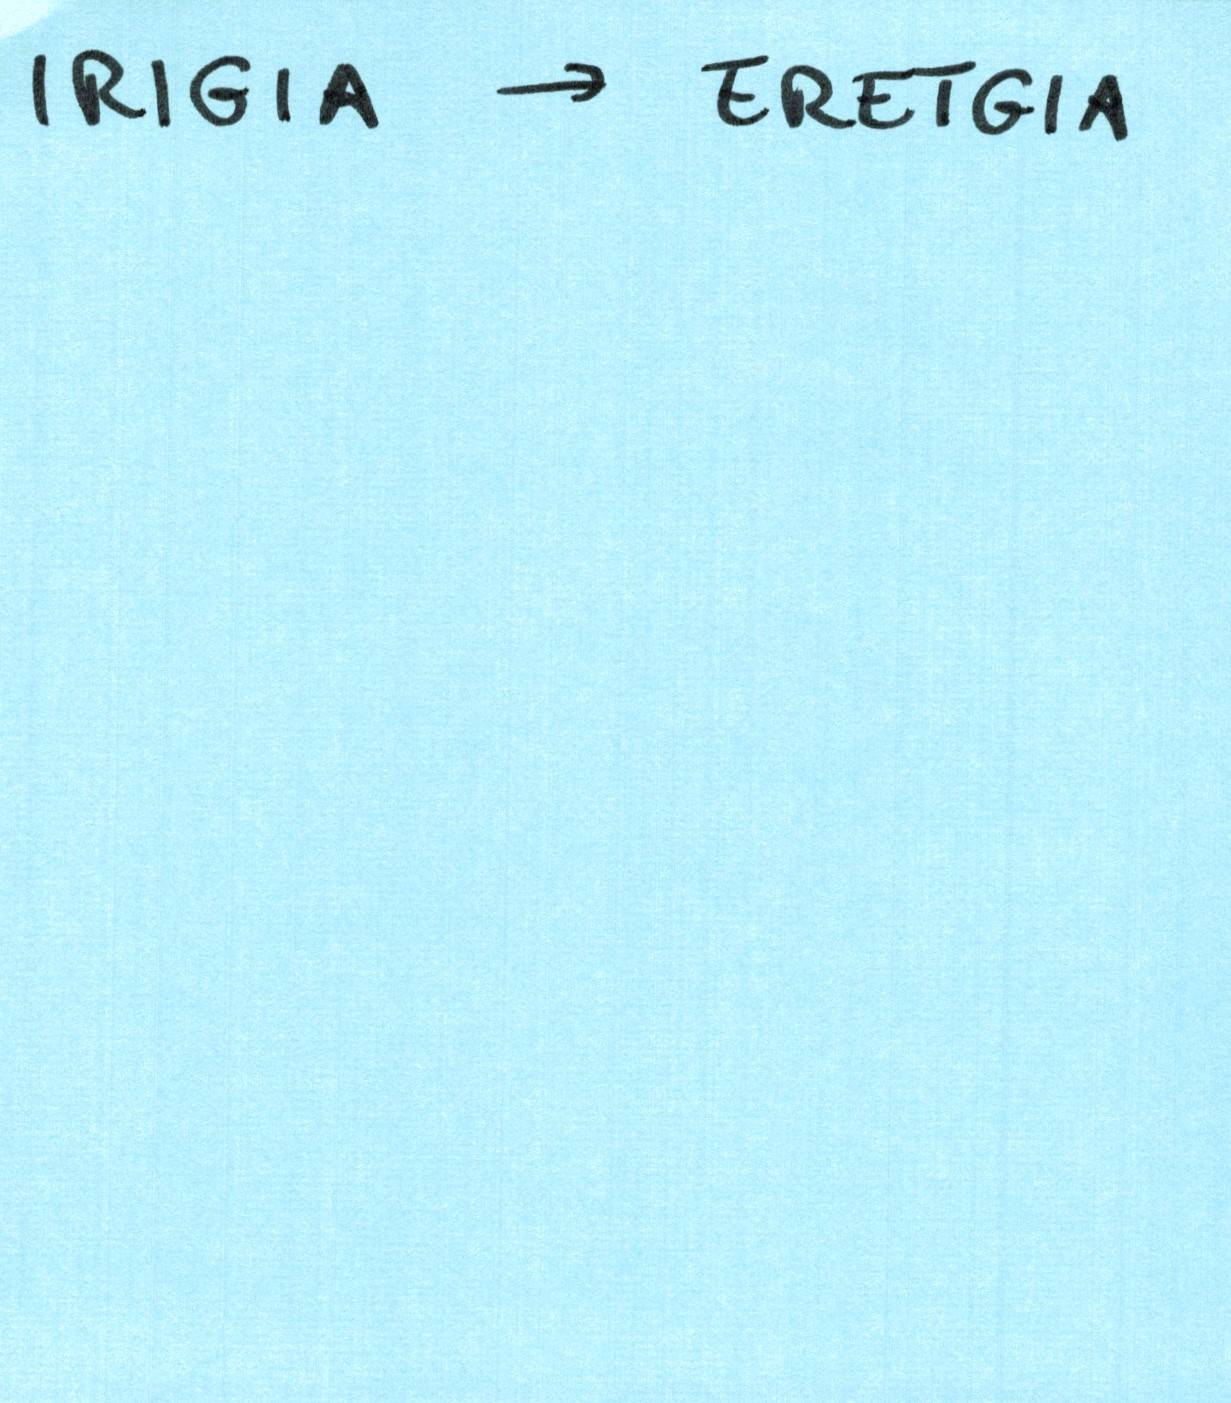 IRIGIA → ERETGIA